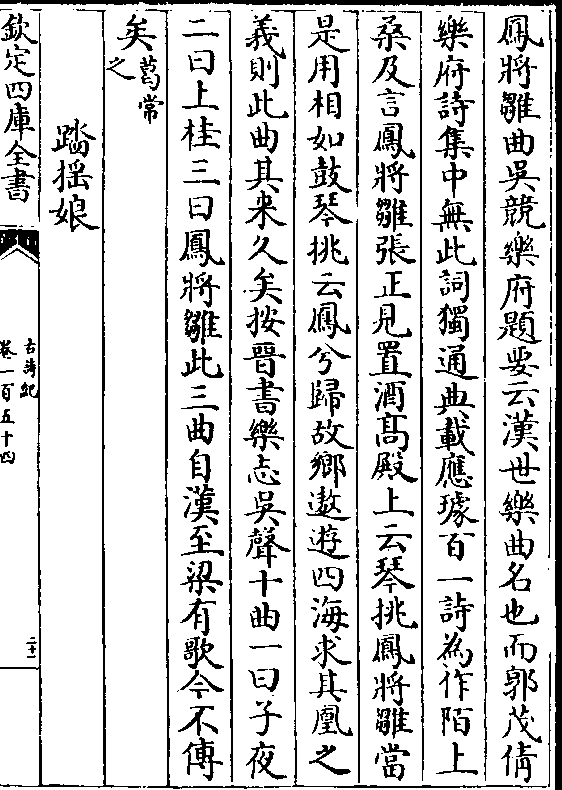 鳳將雛曲吳競樂府題要云漢世樂曲名也而郭茂倩
樂府詩集中無此詞獨通典載應璩百一詩為作陌上
桑及言鳳將雛張正見置酒髙殿上云琴挑鳳將雛當
是用相如鼓琴挑云鳳兮歸故鄉遨遊四海求其凰之
義則此曲其來久矣按晉書樂志吳聲十曲一曰子夜
二曰上桂三曰鳳將雛此三曲自漢至梁有歌今不傳
矣葛常之
踏揺娘
欽定四庫全書
古詩紀
卷一百五十四
二十